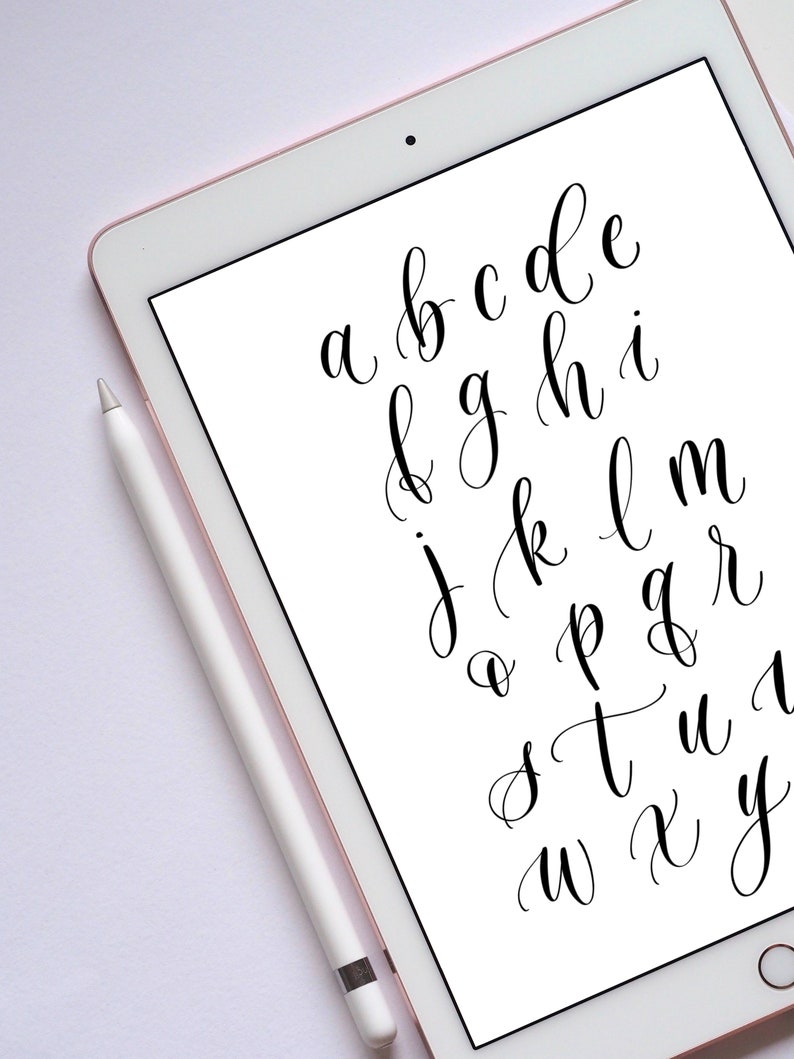 a b c d e
f g h i
j k l m
o p q r
s t u
w x y